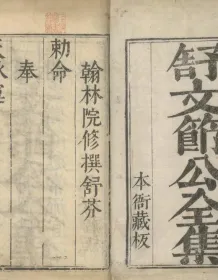 舒文節公全集
本衙藏板
翰林院修撰舒芬
奉
勅命